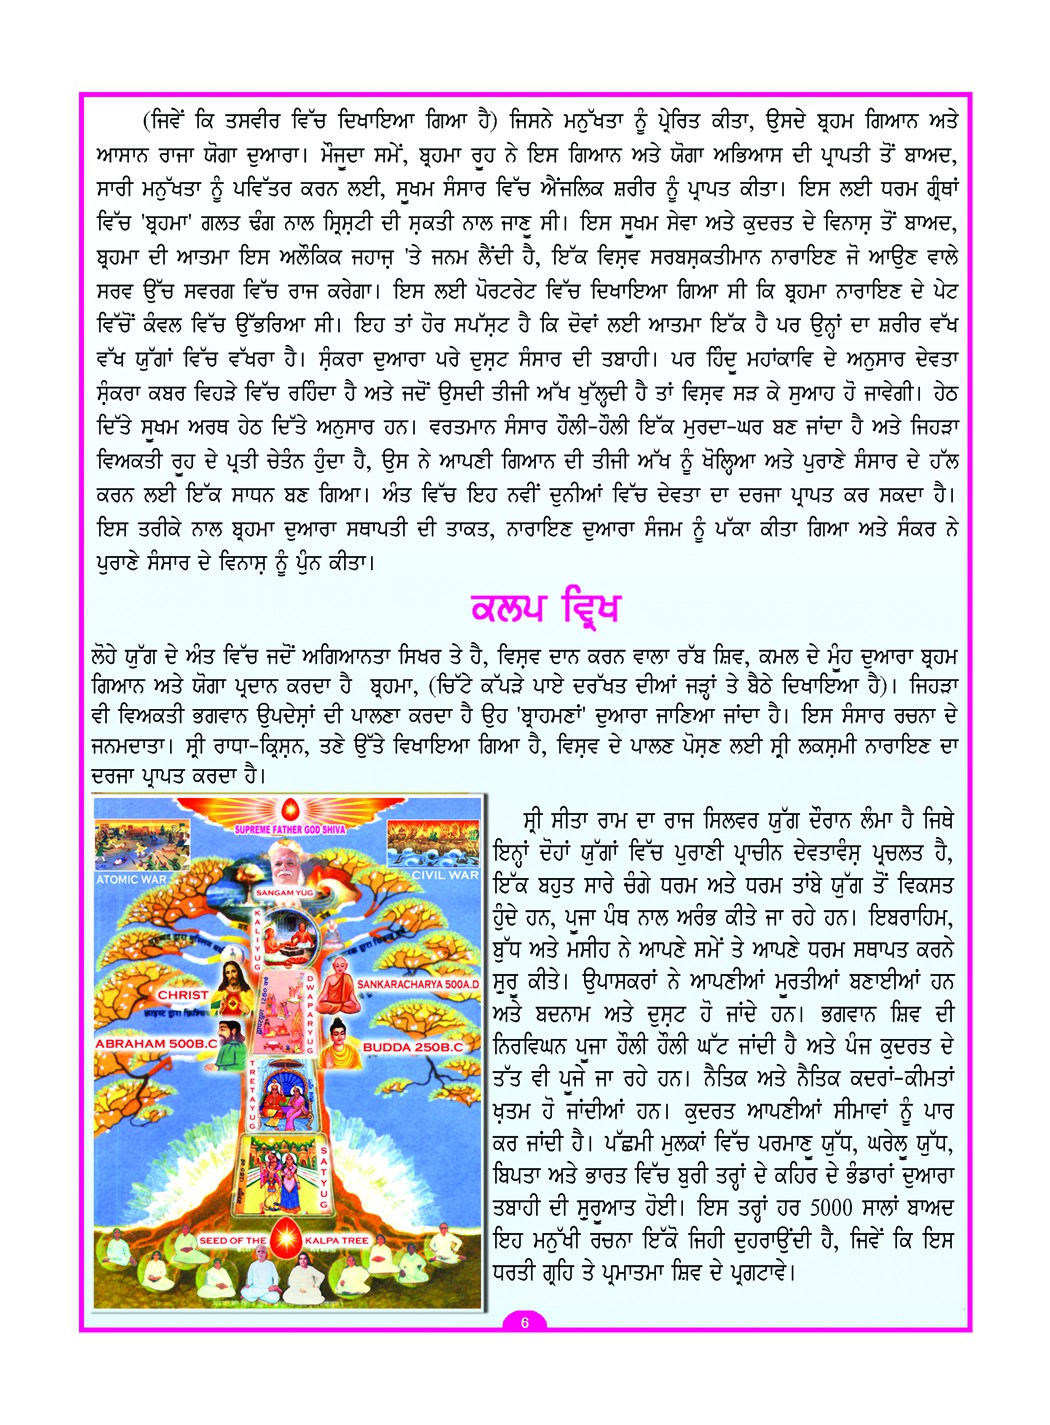 (ਜਿਵੇਂ ਕਿ ਤਸਵੀਰ ਵਿੱਚ ਦਿਖਾਇਆ ਗਿਆ ਹੈ) ਜਿਸਨੇ ਮਨੁੱਖਤਾ ਨੂੰ ਪ੍ਰੇਰਿਤ ਕੀਤਾ, ਉਸਦੇ ਬ੍ਰਹਮ ਗਿਆਨ ਅਤੇ
ਆਸਾਨ ਰਾਜਾ ਯੋਗਾ ਦੁਆਰਾ। ਮੌਜੂਦਾ ਸਮੇਂ, ਬ੍ਰਹਮਾ ਰੂਹ ਨੇ ਇਸ ਗਿਆਨ ਅਤੇ ਯੋਗਾ ਅਭਿਆਸ ਦੀ ਪ੍ਰਾਪਤੀ ਤੋਂ ਬਾਅਦ,
ਸਾਰੀ ਮਨੁੱਖਤਾ ਨੂੰ ਪਵਿੱਤਰ ਕਰਨ ਲਈ, ਸੂਖਮ ਸੰਸਾਰ ਵਿੱਚ ਐਂਜਲਿਕ ਸ਼ਰੀਰ ਨੂੰ ਪ੍ਰਾਪਤ ਕੀਤਾ। ਇਸ ਲਈ ਧਰਮ ਗ੍ਰੰਥਾਂ
ਵਿੱਚ 'ਬ੍ਰਹਮਾ' ਗਲਤ ਢੰਗ ਨਾਲ ਸ੍ਰਿਸ਼ਟੀ ਦੀ ਸ਼ਕਤੀ ਨਾਲ ਜਾਣੂ ਸੀ। ਇਸ ਸੂਖਮ ਸੇਵਾ ਅਤੇ ਕੁਦਰਤ ਦੇ ਵਿਨਾਸ਼ ਤੋਂ ਬਾਅਦ,
ਬ੍ਰਹਮਾ ਦੀ ਆਤਮਾ ਇਸ ਅਲੌਕਿਕ ਜਹਾਜ਼ 'ਤੇ ਜਨਮ ਲੈਂਦੀ ਹੈ, ਇੱਕ ਵਿਸ਼ਵ ਸਰਬਸ਼ਕਤੀਮਾਨ ਨਾਰਾਇਣ ਜੋ ਆਉਣ ਵਾਲੇ
ਸਰਵ ਉੱਚ ਸਵਰਗ ਵਿੱਚ ਰਾਜ ਕਰੇਗਾ। ਇਸ ਲਈ ਪੋਰਟਰੇਟ ਵਿੱਚ ਦਿਖਾਇਆ ਗਿਆ ਸੀ ਕਿ ਬ੍ਰਹਮਾ ਨਾਰਾਇਣ ਦੇ ਪੇਟ
ਵਿੱਚੋਂ ਕੰਵਲ ਵਿੱਚ ਉੱਭਰਿਆ ਸੀ। ਇਹ ਤਾਂ ਹੋਰ ਸਪੱਸ਼ਟ ਹੈ ਕਿ ਦੋਵਾਂ ਲਈ ਆਤਮਾ ਇੱਕ ਹੈ ਪਰ ਉਨ੍ਹਾਂ ਦਾ ਸ਼ਰੀਰ ਵੱਖ
ਵੱਖ ਯੁੱਗਾਂ ਵਿੱਚ ਵੱਖਰਾ ਹੈ। ਸ਼ੰਕਰਾ ਦੁਆਰਾ ਪਰੇ ਦੁਸ਼ਟ ਸੰਸਾਰ ਦੀ ਤਬਾਹੀ। ਪਰ ਹਿੰਦੂ ਮਹਾਂਕਾਵਿ ਦੇ ਅਨੁਸਾਰ ਦੇਵਤਾ
ਸ਼ੰਕਰਾ ਕਬਰ ਵਿਹੜੇ ਵਿੱਚ ਰਹਿੰਦਾ ਹੈ ਅਤੇ ਜਦੋਂ ਉਸਦੀ ਤੀਜੀ ਅੱਖ ਖੁੱਲ੍ਹਦੀ ਹੈ ਤਾਂ ਵਿਸ਼ਵ ਸੜ ਕੇ ਸੁਆਹ ਹੋ ਜਾਵੇਗੀ। ਹੇਠ
ਦਿੱਤੇ ਸੂਖਮ ਅਰਥ ਹੇਠ ਦਿੱਤੇ ਅਨੁਸਾਰ ਹਨ। ਵਰਤਮਾਨ ਸੰਸਾਰ ਹੌਲੀ-ਹੌਲੀ ਇੱਕ ਮੁਰਦਾ-ਘਰ ਬਣ ਜਾਂਦਾ ਹੈ ਅਤੇ ਜਿਹੜਾ
ਵਿਅਕਤੀ ਰੂਹ ਦੇ ਪ੍ਰਤੀ ਚੇਤੰਨ ਹੁੰਦਾ ਹੈ, ਉਸ ਨੇ ਆਪਣੀ ਗਿਆਨ ਦੀ ਤੀਜੀ ਅੱਖ ਨੂੰ ਖੋਲ੍ਹਿਆ ਅਤੇ ਪੁਰਾਣੇ ਸੰਸਾਰ ਦੇ ਹੱਲ
ਕਰਨ ਲਈ ਇੱਕ ਸਾਧਨ ਬਣ ਗਿਆ। ਅੰਤ ਵਿੱਚ ਇਹ ਨਵੀਂ ਦੁਨੀਆਂ ਵਿੱਚ ਦੇਵਤਾ ਦਾ ਦਰਜਾ ਪ੍ਰਾਪਤ ਕਰ ਸਕਦਾ ਹੈ।
ਇਸ ਤਰੀਕੇ ਨਾਲ ਬ੍ਰਹਮਾ ਦੁਆਰਾ ਸਥਾਪਤੀ ਦੀ ਤਾਕਤ, ਨਾਰਾਇਣ ਦੁਆਰਾ ਸੰਜਮ ਨੂੰ ਪੱਕਾ ਕੀਤਾ ਗਿਆ ਅਤੇ ਸੰਕਰ ਨੇ
ਪੁਰਾਣੇ ਸੰਸਾਰ ਦੇ ਵਿਨਾਸ਼ ਨੂੰ ਪੁੰਨ ਕੀਤਾ।
ਕਲਪ ਵ੍ਰਿਖ
ਲੋਹੇ ਯੁੱਗ ਦੇ ਅੰਤ ਵਿੱਚ ਜਦੋਂ ਅਗਿਆਨਤਾ ਸਿਖਰ ਤੇ ਹੈ, ਵਿਸ਼ਵ ਦਾਨ ਕਰਨ ਵਾਲਾ ਰੱਬ ਸ਼ਿਵ, ਕਮਲ ਦੇ ਮੂੰਹ ਦੁਆਰਾ ਬ੍ਰਹਮ
ਗਿਆਨ ਅਤੇ ਯੋਗਾ ਪ੍ਰਦਾਨ ਕਰਦਾ ਹੈ ਬ੍ਰਹਮਾ, (ਚਿੱਟੇ ਕੱਪੜੇ ਪਾਏ ਦਰੱਖਤ ਦੀਆਂ ਜੜ੍ਹਾਂ ਤੇ ਬੈਠੇ ਦਿਖਾਇਆ ਹੈ)। ਜਿਹੜਾ
ਵੀ ਵਿਅਕਤੀ ਭਗਵਾਨ ਉਪਦੇਸ਼ਾਂ ਦੀ ਪਾਲਣਾ ਕਰਦਾ ਹੈ ਉਹ 'ਬ੍ਰਾਹਮਣਾਂ' ਦੁਆਰਾ ਜਾਣਿਆ ਜਾਂਦਾ ਹੈ। ਇਸ ਸੰਸਾਰ ਰਚਨਾ ਦੇ
ਜਨਮਦਾਤਾ। ਸ੍ਰੀ ਰਾਧਾ-ਕ੍ਰਿਸ਼ਨ, ਤਣੇ ਉੱਤੇ ਵਿਖਾਇਆ ਗਿਆ ਹੈ, ਵਿਸ਼ਵ ਦੇ ਪਾਲਣ ਪੋਸ਼ਣ ਲਈ ਸ੍ਰੀ ਲਕਸ਼ਮੀ ਨਾਰਾਇਣ ਦਾ
ਦਰਜਾ ਪ੍ਰਾਪਤ ਕਰਦਾ ਹੈ।
SUPREME FATHER GOD SHIVA
ATOMIC WAR
CIVIL WAR
SANGAM YUG
KALIYUG
CHRIST
SANKARACHARYA 500A.D
DWAPARYUG
ABRAHAM 500B.C
BUDDA 250B.C
TRETAYUG
SATYUG
SEED OF THE KALPA TREE
ਸ੍ਰੀ ਸੀਤਾ ਰਾਮ ਦਾ ਰਾਜ ਸਿਲਵਰ ਯੁੱਗ ਦੌਰਾਨ ਲੰਮਾ ਹੈ ਜਿਥੇ
ਇਨ੍ਹਾਂ ਦੋਹਾਂ ਯੁੱਗਾਂ ਵਿੱਚ ਪੁਰਾਣੀ ਪ੍ਰਾਚੀਨ ਦੇਵਤਾਵੰਸ਼ ਪ੍ਰਚਲਤ ਹੈ,
ਇੱਕ ਬਹੁਤ ਸਾਰੇ ਚੰਗੇ ਧਰਮ ਅਤੇ ਧਰਮ ਤਾਂਬੇ ਯੁੱਗ ਤੋਂ ਵਿਕਸਤ
ਹੁੰਦੇ ਹਨ, ਪੂਜਾ ਪੰਥ ਨਾਲ ਅਰੰਭ ਕੀਤੇ ਜਾ ਰਹੇ ਹਨ। ਇਬਰਾਹਿਮ,
ਬੁੱਧ ਅਤੇ ਮਸੀਹ ਨੇ ਆਪਣੇ ਸਮੇਂ ਤੇ ਆਪਣੇ ਧਰਮ ਸਥਾਪਤ ਕਰਨੇ
ਸ਼ੁਰੂ ਕੀਤੇ। ਉਪਾਸਕਰਾਂ ਨੇ ਆਪਣੀਆਂ ਮੂਰਤੀਆਂ ਬਣਾਈਆਂ ਹਨ
ਅਤੇ ਬਦਨਾਮ ਅਤੇ ਦੁਸ਼ਟ ਹੋ ਜਾਂਦੇ ਹਨ। ਭਗਵਾਨ ਸ਼ਿਵ ਦੀ
ਨਿਰਵਿਘਨ ਪੂਜਾ ਹੌਲੀ ਹੌਲੀ ਘੱਟ ਜਾਂਦੀ ਹੈ ਅਤੇ ਪੰਜ ਕੁਦਰਤ ਦੇ
ਤੱਤ ਵੀ ਪੂਜੇ ਜਾ ਰਹੇ ਹਨ। ਨੈਤਿਕ ਅਤੇ ਨੈਤਿਕ ਕਦਰਾਂ-ਕੀਮਤਾਂ
ਖ਼ਤਮ ਹੋ ਜਾਂਦੀਆਂ ਹਨ। ਕੁਦਰਤ ਆਪਣੀਆਂ ਸੀਮਾਵਾਂ ਨੂੰ ਪਾਰ
ਕਰ ਜਾਂਦੀ ਹੈ। ਪੱਛਮੀ ਮੁਲਕਾਂ ਵਿੱਚ ਪਰਮਾਣੂ ਯੁੱਧ, ਘਰੇਲੂ ਯੁੱਧ,
ਬਿਪਤਾ ਅਤੇ ਭਾਰਤ ਵਿੱਚ ਬੁਰੀ ਤਰ੍ਹਾਂ ਦੇ ਕਹਿਰ ਦੇ ਭੰਡਾਰਾਂ ਦੁਆਰਾ
ਤਬਾਹੀ ਦੀ ਸ਼ੁਰੂਆਤ ਹੋਈ। ਇਸ ਤਰ੍ਹਾਂ ਹਰ 5000 ਸਾਲਾਂ ਬਾਅਦ
ਇਹ ਮਨੁੱਖੀ ਰਚਨਾ ਇੱਕੋ ਜਿਹੀ ਦੁਹਰਾਉਂਦੀ ਹੈ, ਜਿਵੇਂ ਕਿ ਇਸ
ਧਰਤੀ ਗ੍ਰਹਿ ਤੇ ਪ੍ਰਮਾਤਮਾ ਸ਼ਿਵ ਦੇ ਪ੍ਰਗਟਾਵੇ।
6